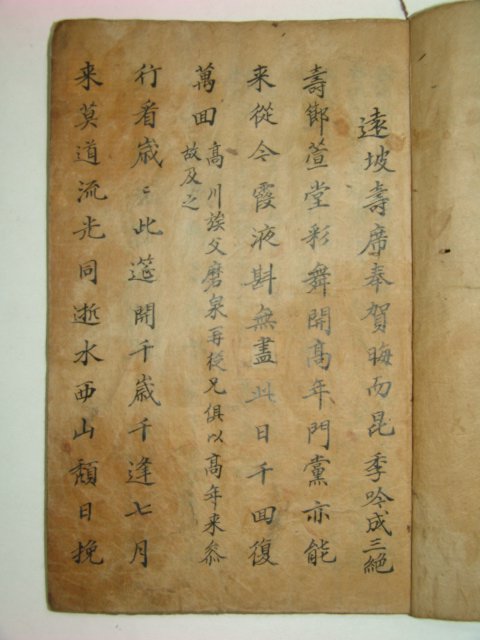 遠坡壽席奉賀晦而昆季吟成三絶
壽鄉萱堂彩舞開高年門黨亦能
来從今霞液斟無盡此日千回復
萬回高川族父磨泉再從兄俱以高年来參
故及之
行看歲〻此筵開千歲千逢七月
来莫道流光同逝水西山頹日挽